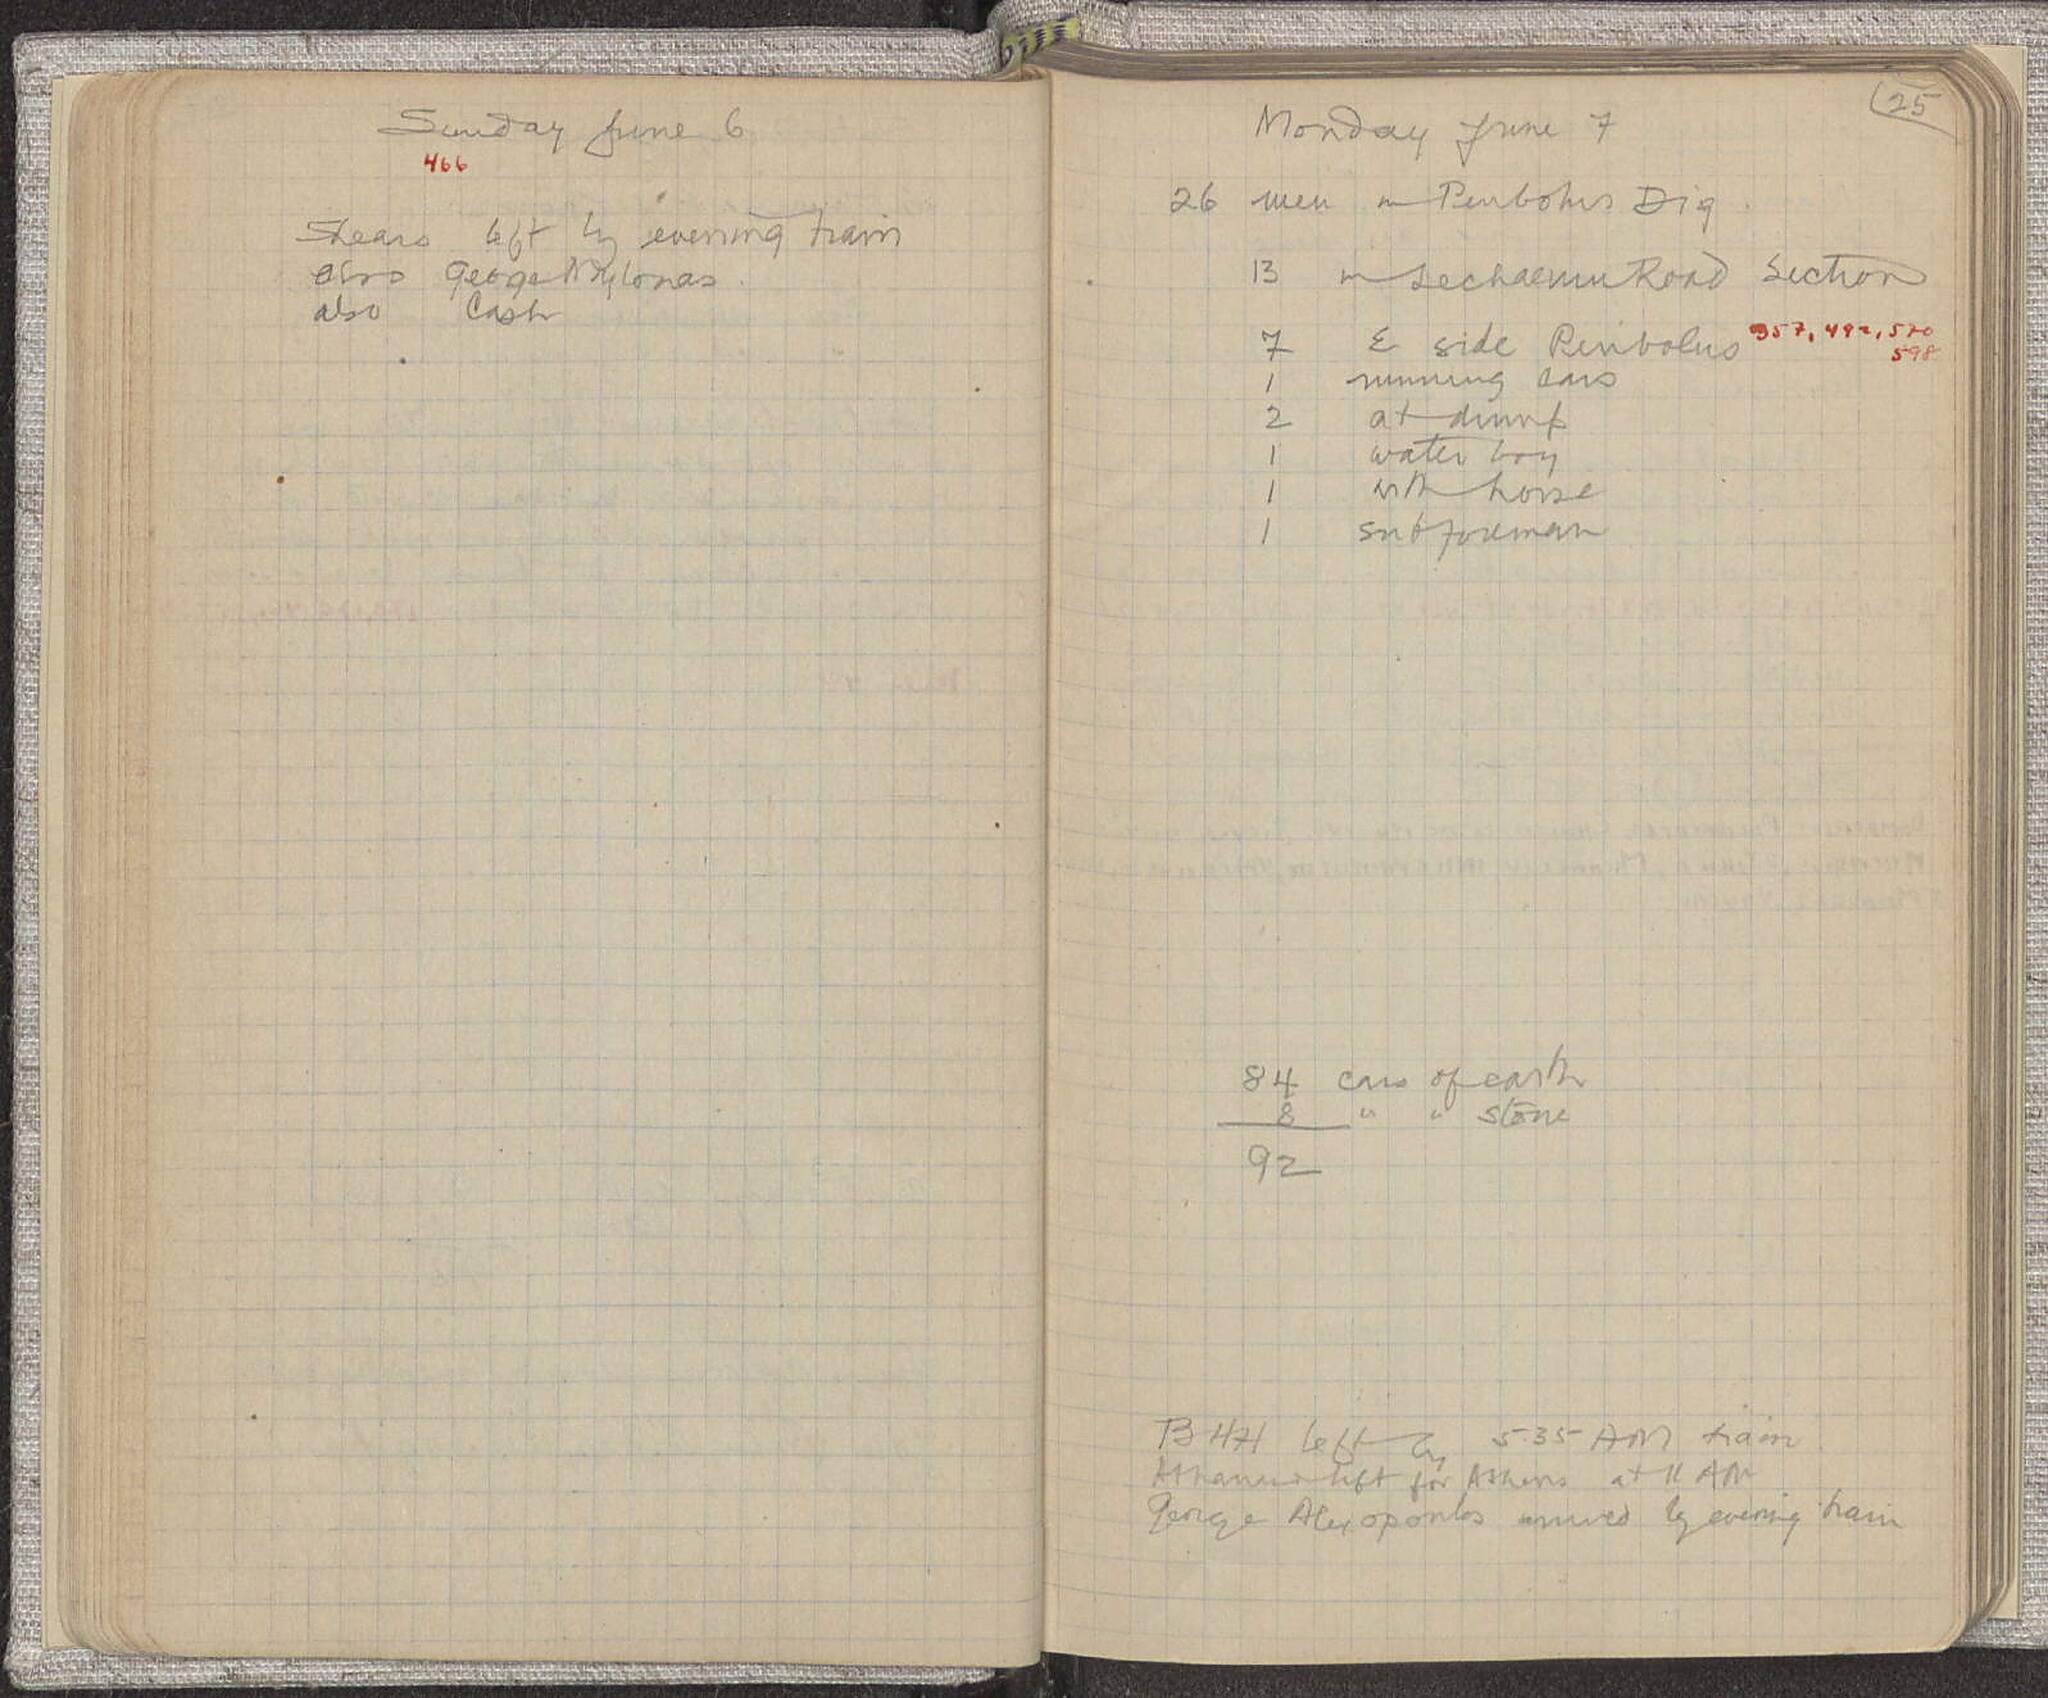 Sunday June 6
466
Shears left by evening train
also George Mylonas.
also Cash
25
Monday June 7
26 men in Peribolus Dig.
13 in Lechaeum Road Section
7 E side Peribolus 357, 492, 520
598
1 running cars
2 at dump
1 water boy
1 with horse
1 subforeman
84 cars of earth
8 " " stone
92
BHH left by 5.35 AM train
left for Athens at 11 AM
George Alexopoulos arrived by evening train